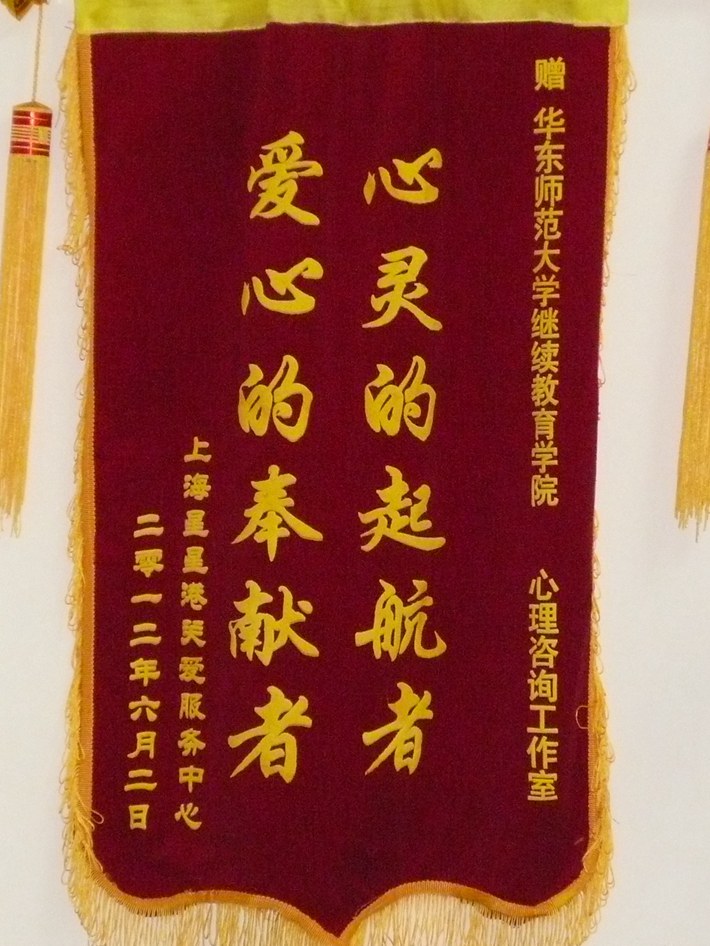 赠 华东师范大学继续教育学院 心理咨询工作室
心灵的起航者
爱心的奉献者
上海星星港关爱服务中心
二零一二年六月二日